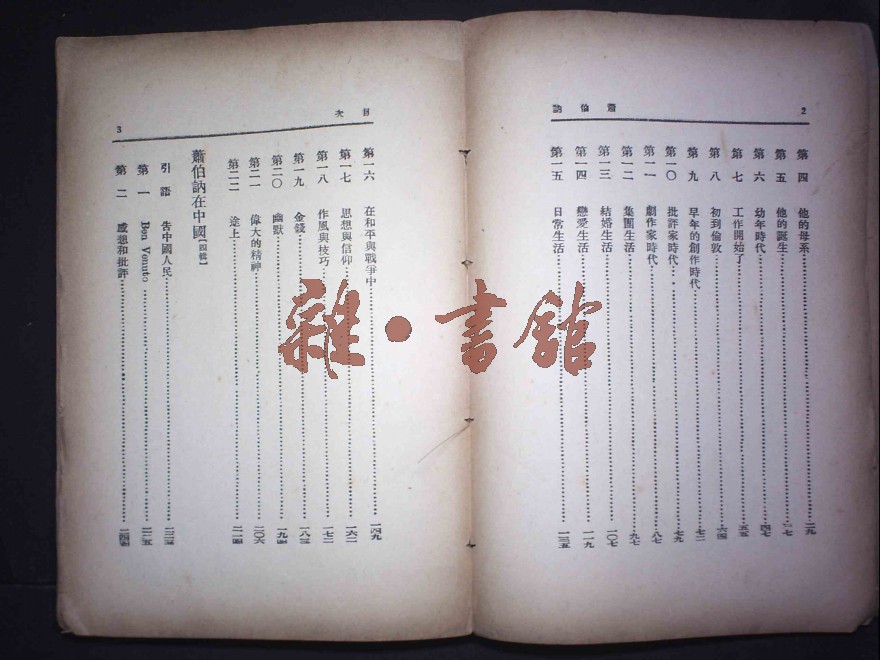 2
蕭伯訥
第四 他的母系 二九
第五 他的誕生 三七
第六 幼年時代 四七
第七 工作開始了 五五
第八 初到倫敦 六四
第九 早年的創作時代 七二
第一〇 批評家時代 七九
第一一 劇作家時代 八七
第一二 集團生活 九七
第一三 結婚生活 一〇七
第一四 戀愛生活 一一九
第一五 日常生活 一三五
目次
3
第一六 在和平與戰爭中 一四九
第一七 思想與信仰 一六二
第一八 作風與技巧 一七二
第一九 金錢 一八三
第二〇 幽默 一九四
第二一 偉大的精神 二〇六
第二二 途上 二一四
蕭伯訥在中國【四輯】
引語 告中國人民
第一 Ben Venuto 二二五
第二 感想和批評 二四四
雜·書館